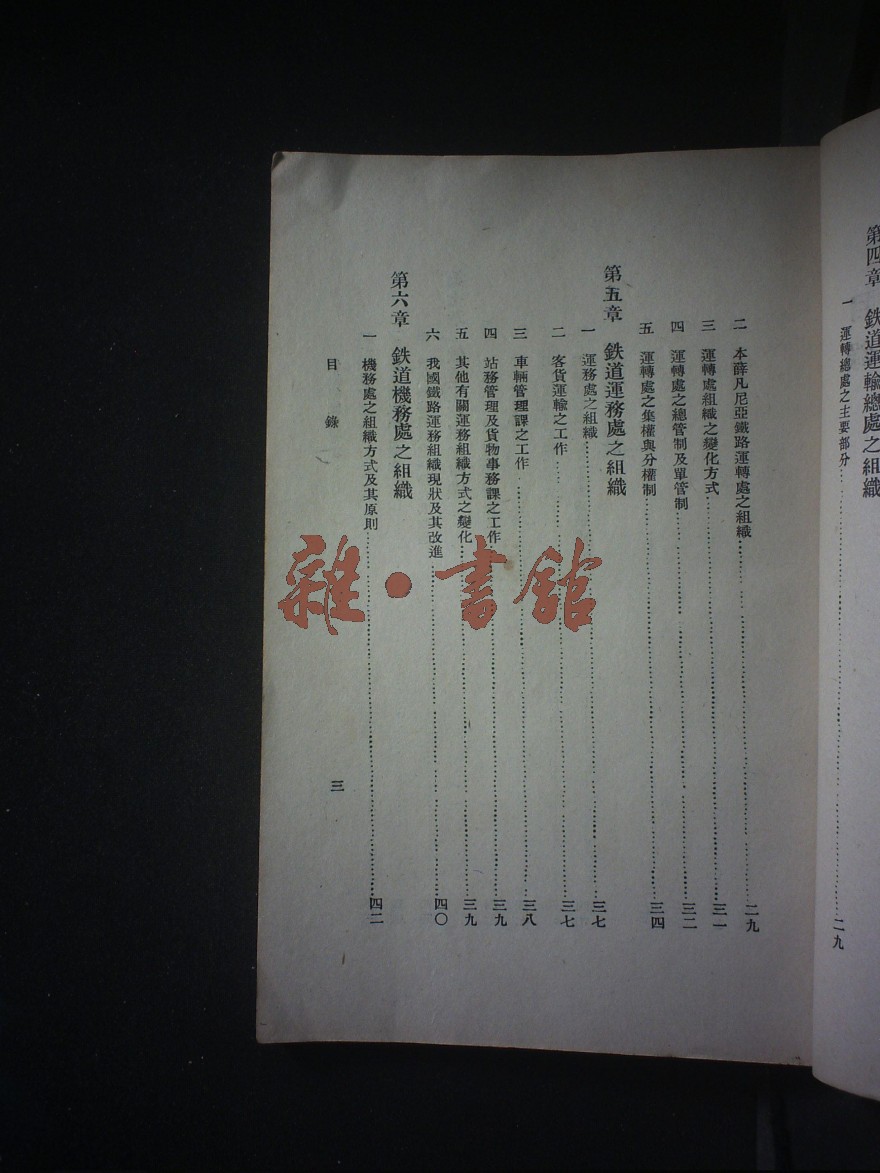 第四章　鉄道運輸總處之組織
一　運轉總處之主要部分……二九
二　本薛凡尼亞鐵路運轉處之組織……二九
三　運轉處組織之變化方式……三一
四　運轉處之總管制及單管制……三二
五　運轉處之集權與分權制……三四
第五章　鉄道運務處之組織
一　運務處之組織……三七
二　客貨運輸之工作……三七
三　車輛管理課之工作……三八
四　站務管理及貨物事務課之工作……三九
五　其他有關運務組織方式之變化……三九
六　我國鐵路運務組織現狀及其改進……四〇
第六章　鉄道機務處之組織
一　機務處之組織方式及其原則……四二
目錄　三
雜·書館